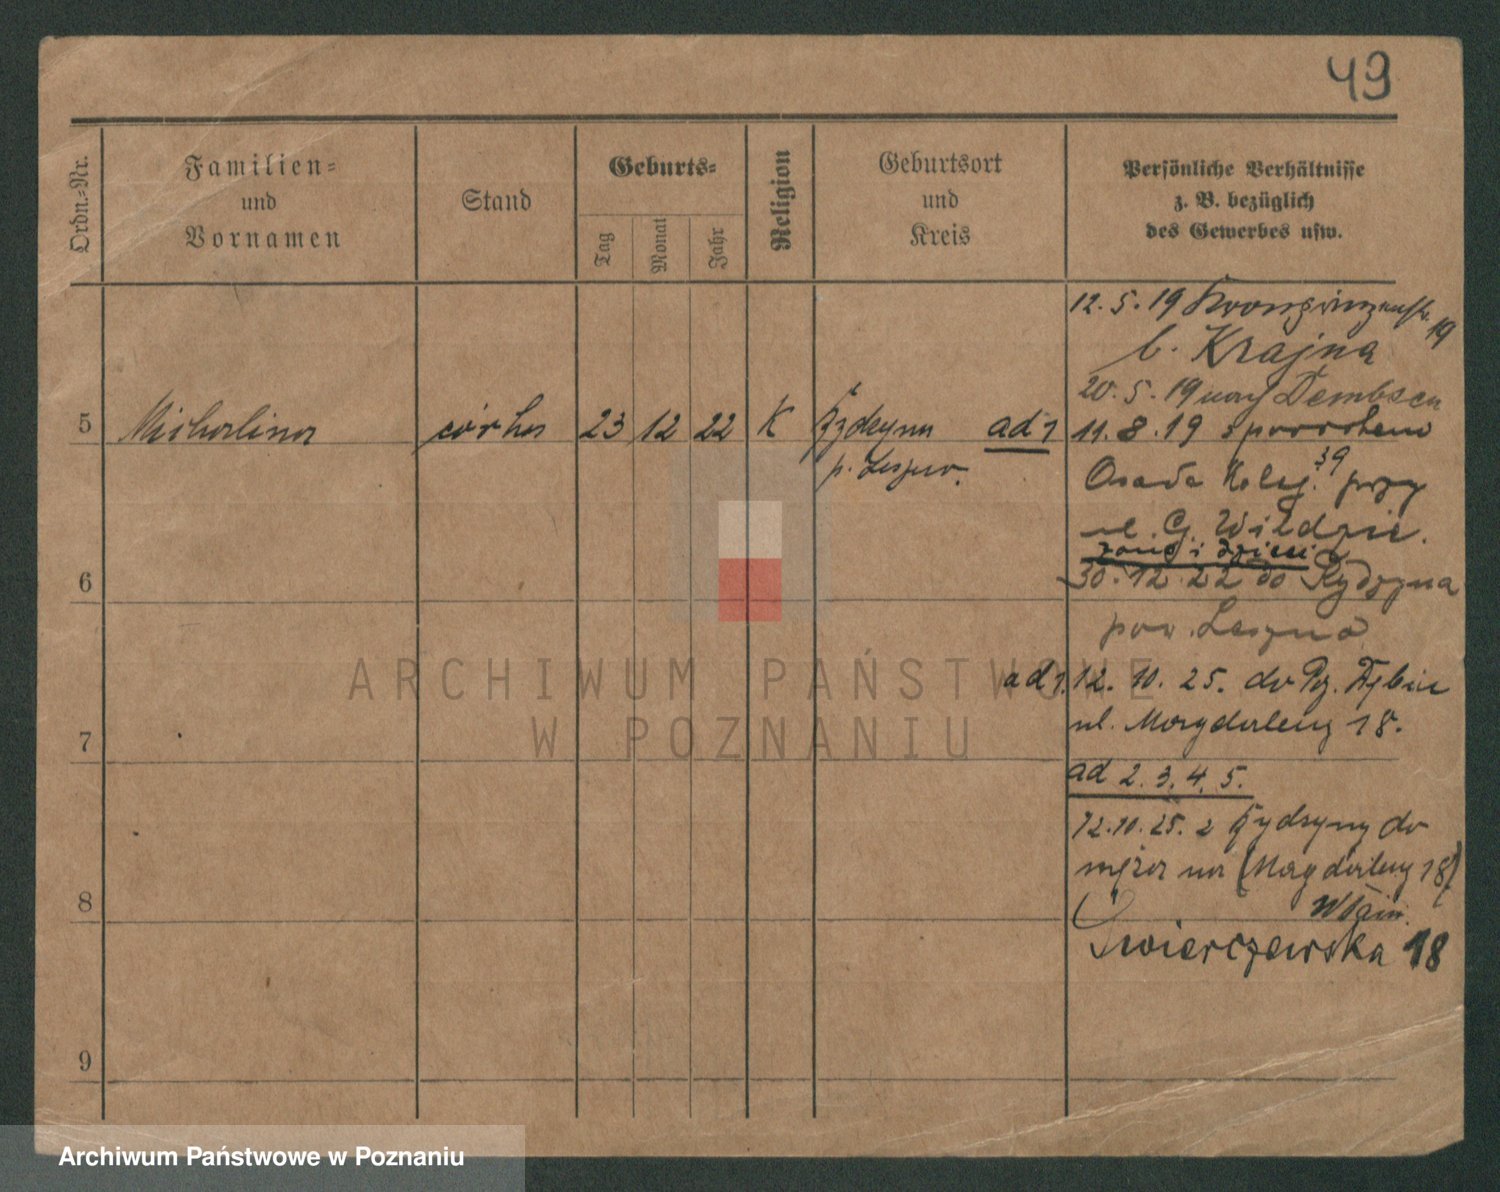 49
Ordn.-Nr.
Familien-
und
Vornamen
Stand
Geburts-
Tag
Monat
Jahr
Religion
Geburtsort
und
Kreis
Persönliche Verhältnisse
z. B. bezüglich
des Gewerbes usw.
12.5.19 Kronprinzenstr. 19
b. Krajna
20.5.19 nach Dembsen
5 Michalina córka 23 12 22 K Rydzyna ad 1
p. Leszno.
11.8.19 z powrotem
Osada Kolej. 39 przy
ul. G. Wildzie.
żona i dzieci
6
30.12.22 do Rydzyna
pow. Leszno
ad 1. 12. 10. 25. do Pz. Dębiec
ul. Magdaleny 18.
7
ad 2. 3. 4. 5.
12.10.25. z Rydzyny do
męża na (Magdaleny 18)
8
Świerczewska 18
9
ARCHIWUM PAŃSTWOWE
W POZNANIU
Archiwum Państwowe w Poznaniu